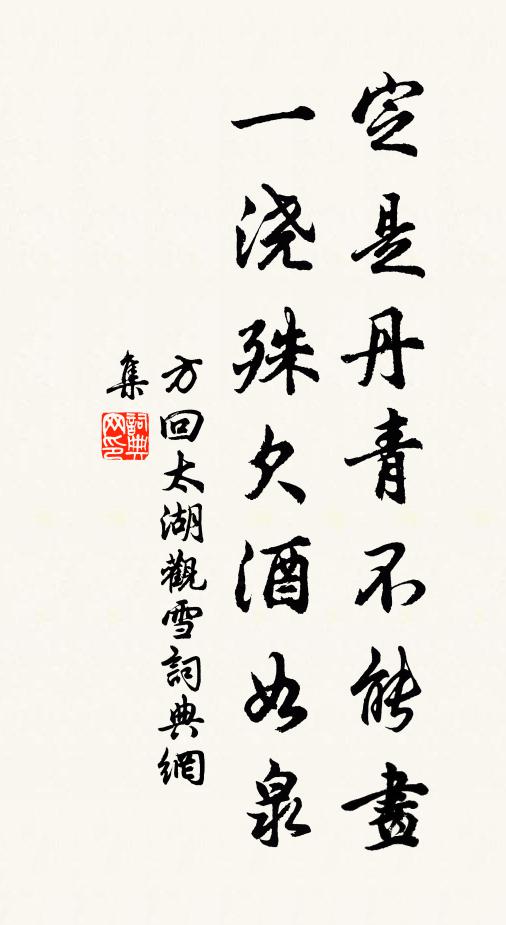 定是丹青不能畫
一浇殊欠酒如泉
方回太湖觀雪詞典網
集
詞典网印